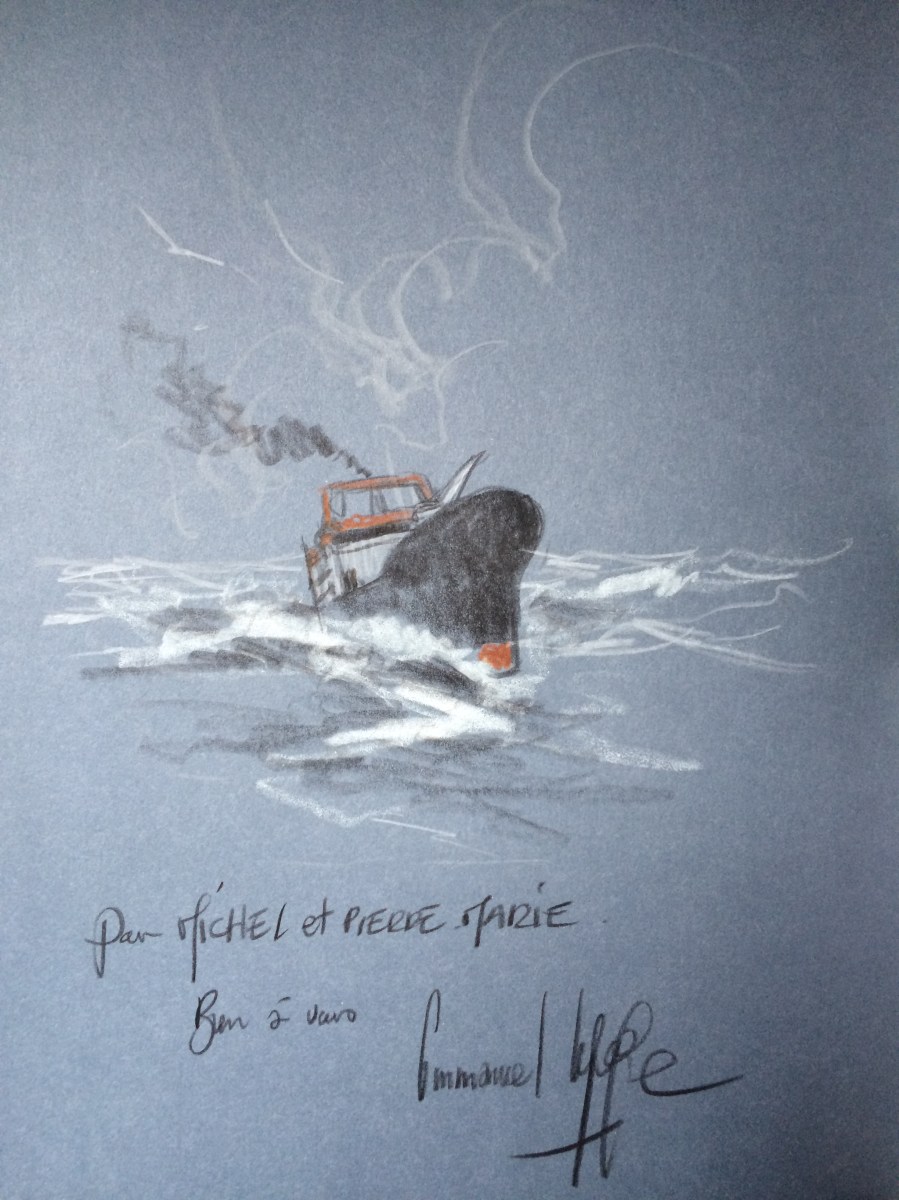 Pour MICHEL et PIERRE MARIE.
Bien à vous
Emmanuel Lepage